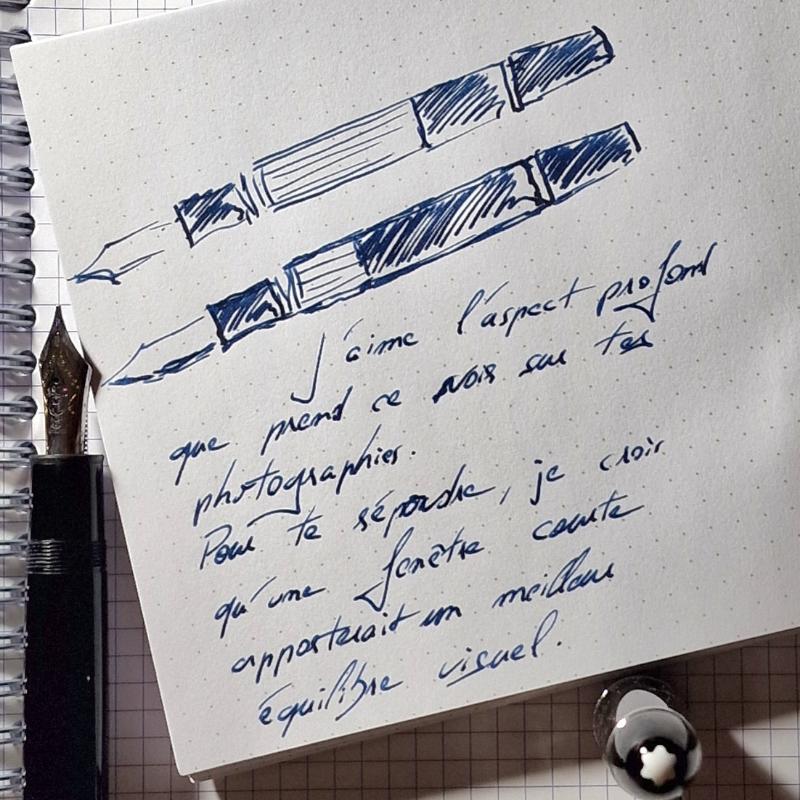 J'aime l'aspect profond
que prend ce noir sur tes
photographies.
Pour te répondre, je crois
qu'une fenêtre courte
apporterait un meilleur
équilibre visuel.